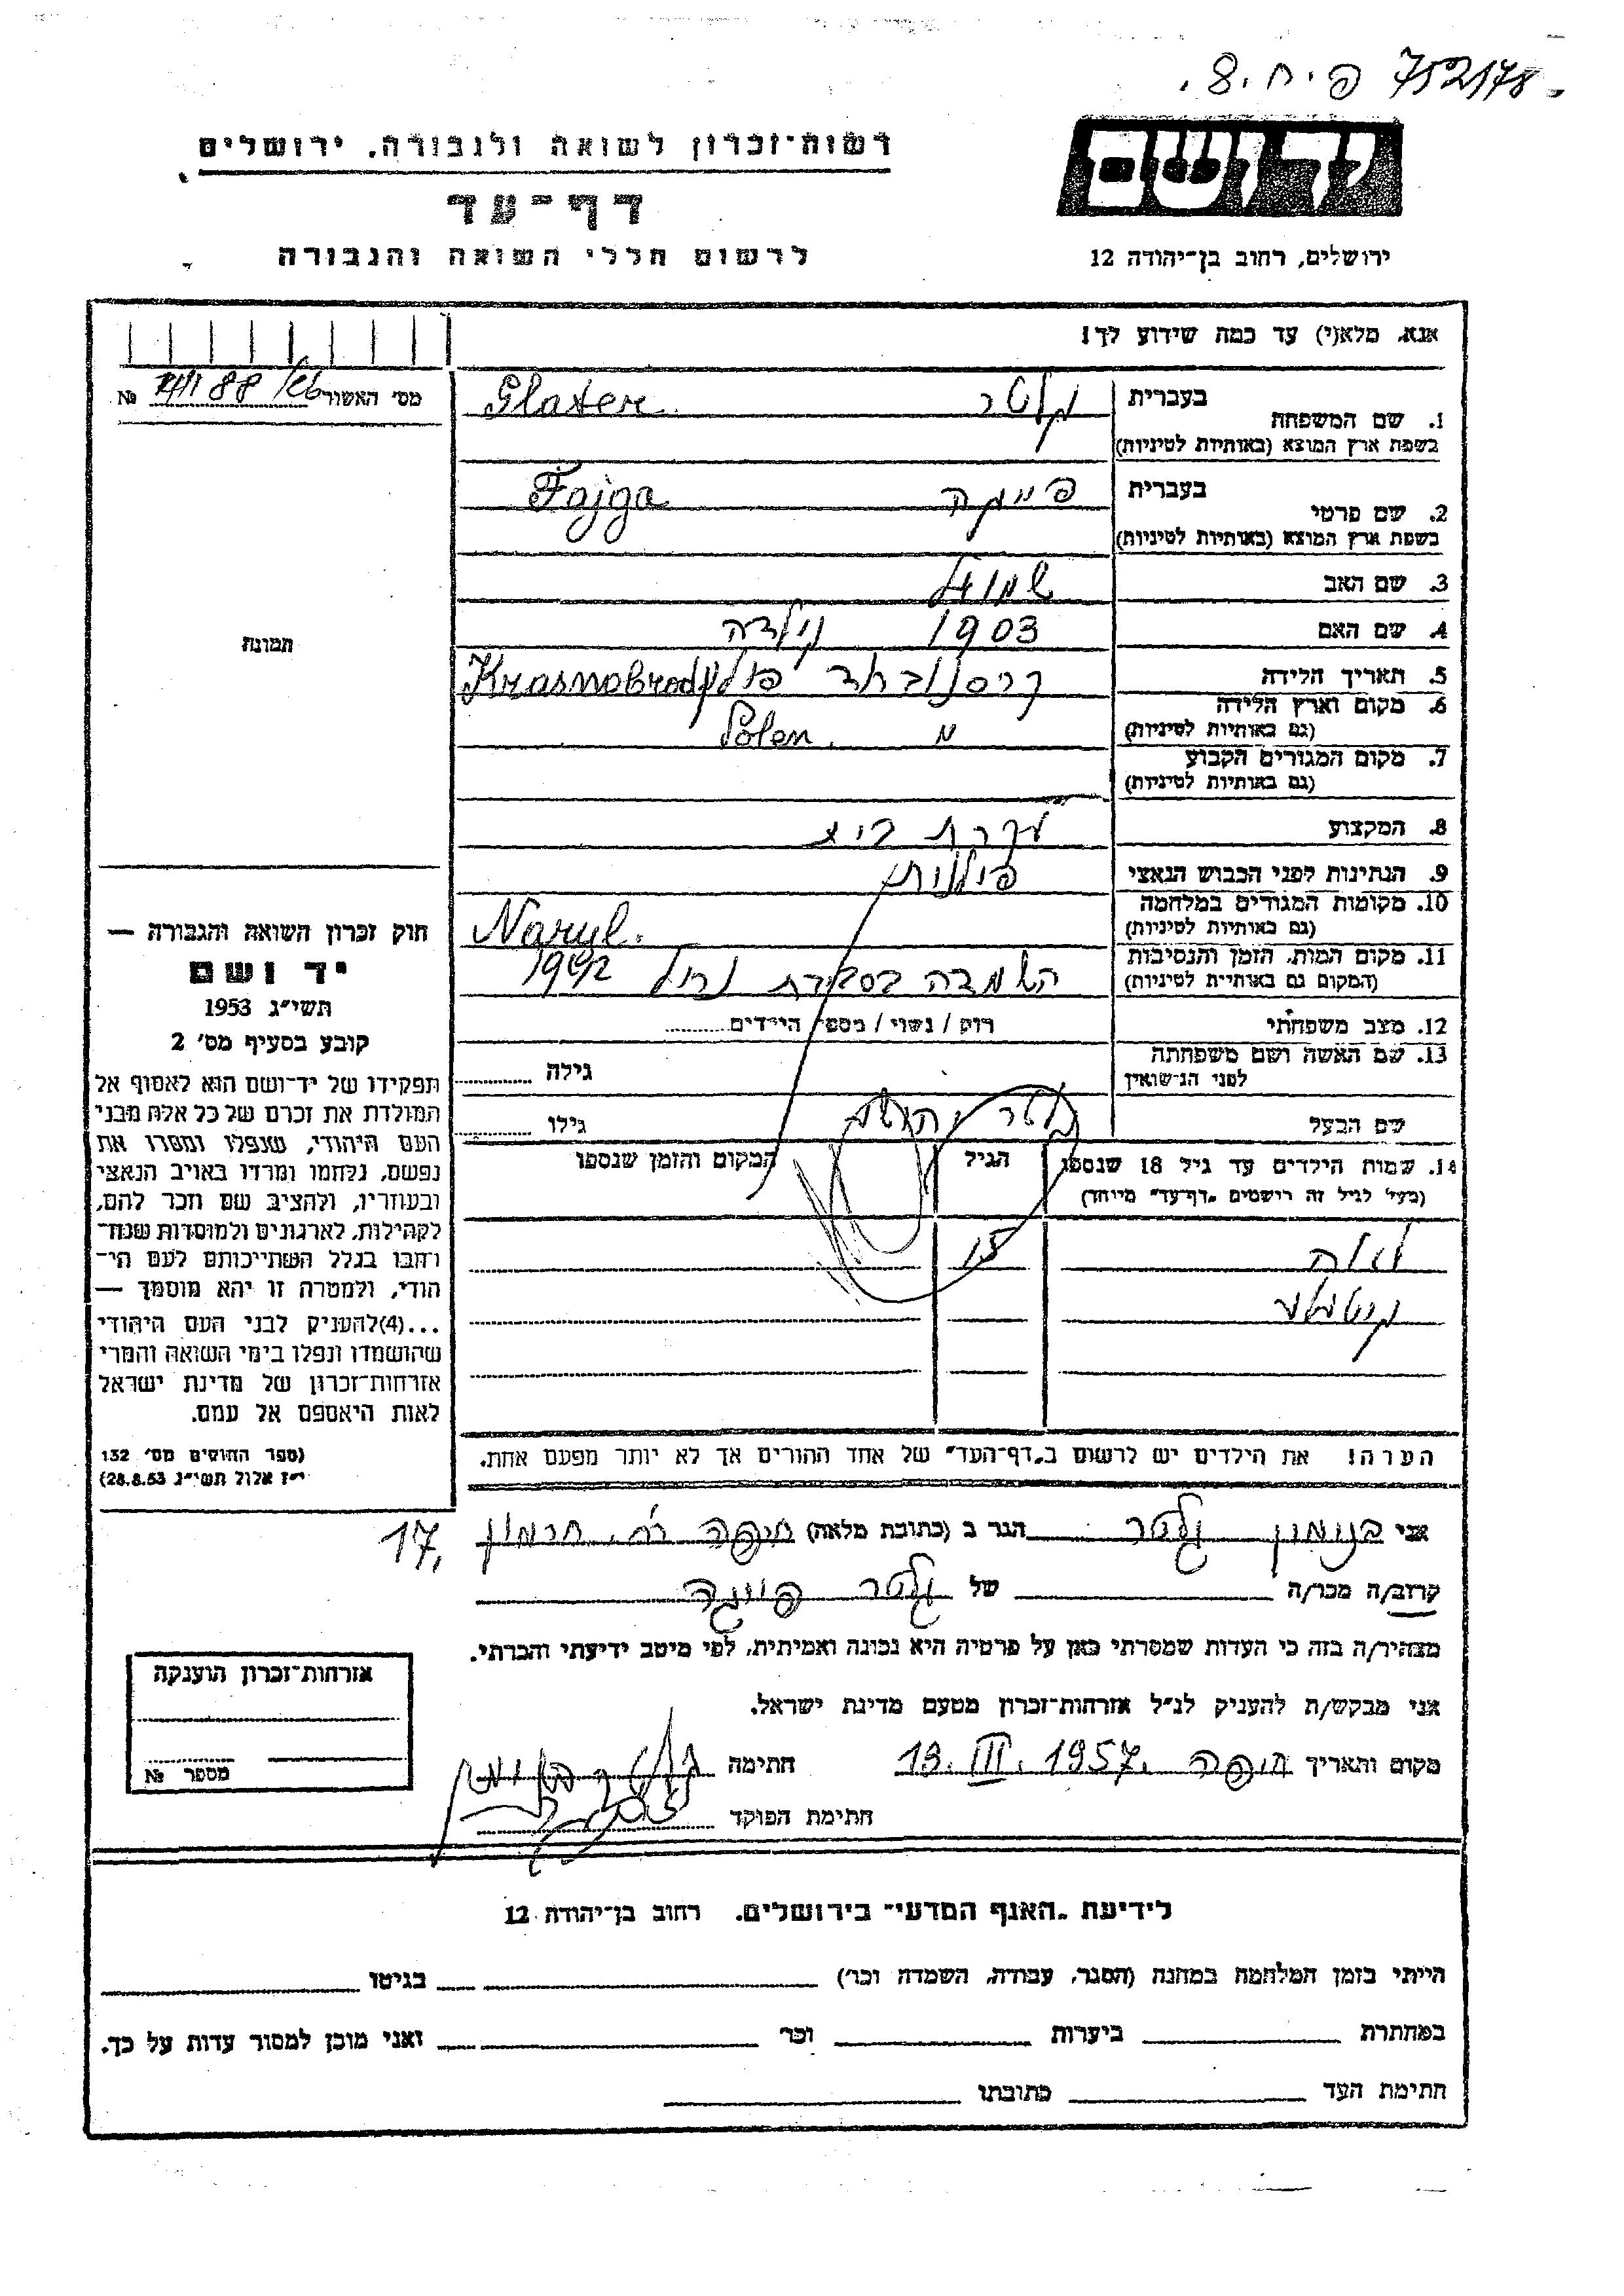 752178 פ.ח.8.
יד ושם
רשות־זכרון לשואה ולגבורה, ירושלים
דף־עד
לרשום חללי השואה והגבורה
ירושלים, רחוב בן־יהודה 12
אנא, מלא(י) עד כמה שידוע לך!
מס' האשור №
בעברית גלטר Glater
1. שם המשפחה
בשפת ארץ המוצא (באותיות לטיניות)
בעברית פייגה Fajga
2. שם פרטי
בשפת ארץ המוצא (באותיות לטיניות)
3. שם האב שמואל
4. שם האם 1903
5. תאריך הלידה Krasnobrod
6. מקום וארץ הלידה
(גם באותיות לטיניות) Polen
7. מקום המגורים הקבוע
(גם באותיות לטיניות)
8. המקצוע עקרת בית
9. הנתינות לפני הכבוש הנאצי פולנית
10. מקומות המגורים במלחמה
(גם באותיות לטיניות) Naryl.
11. מקום המות, הזמן והנסיבות
(המקום גם באותיות לטיניות) נרול 1942
12. מצב משפחתי רווק / נשוי / מספר הילדים
13. שם האשה ושם משפחתה
לפני הנישואין גילה
שם הבעל גלטר גילו
14. שמות הילדים עד גיל 18 שנספו הגיל המקום והזמן שנספו
(מעל לגיל זה רושמים "דף־עד" מיוחד)
לאה 15
הערה! את הילדים יש לרשום ב"דף־העד" של אחד ההורים אך לא יותר מפעם אחת.
תמונה
חוק זכרון השואה והגבורה —
יד ושם
תשי"ג 1953
קובע בסעיף מס' 2
תפקידו של יד־ושם הוא לאסוף אל
המולדת את זכרם של כל אלה מבני
העם היהודי, שנפלו ומסרו את
נפשם, נלחמו ומרדו באויב הנאצי
ובעוזריו, ולהציב שם וזכר להם,
לקהילות, לארגונים ולמוסדות שנח־
רבו בגלל השתייכותם לעם הי־
הודי, ולמטרה זו יהא מוסמך —
...(4)להעניק לבני העם היהודי
שהושמדו ונפלו בימי השואה והמרי
אזרחות־זכרון של מדינת ישראל
לאות היאספם אל עמם.
(ספר החוקים מס' 132
י"ז אלול תשי"ג 28.8.53)
אני בנימין גלטר הגר ב (כתובת מלאה) חיפה רח. חרמון 17,
קרוב/ה מכר/ה של גלטר פייגה
מצהיר/ה בזה כי העדות שמסרתי כאן על פרטיה היא נכונה ואמיתית, לפי מיטב ידיעתי והכרתי.
אני מבקש/ת להעניק לנ"ל אזרחות־זכרון מטעם מדינת ישראל.
מקום ותאריך חיפה 19.III.1957. חתימה
חתימת הפוקד
אזרחות־זכרון הוענקה
מספר №
לידיעת "האגף המדעי" בירושלים, רחוב בן־יהודה 12
הייתי בזמן המלחמה במחנה (הסגר, עבודה, השמדה וכו') בגיטו
במחתרת ביערות וכו' ואני מוכן למסור עדות על כך.
חתימת העד כתובתו